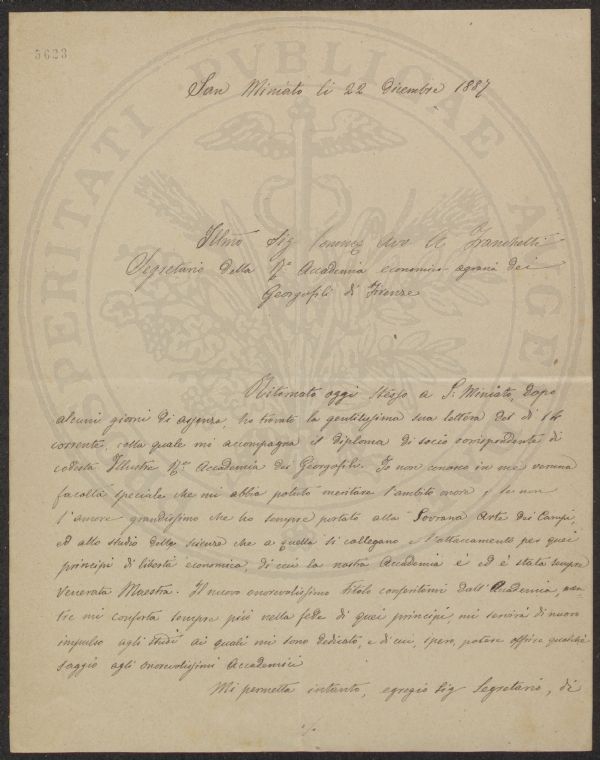 5623
San Miniato li 22 Dicembre 1887
Illmo Sig Avv A Franchetti
Segretario della Rle Accademia economico-agraria dei
Georgofili di Firenze
Ritornato oggi stesso a S. Miniato, dopo
alcuni giorni di assenza, ho trovato la gentilissima sua lettera del di 14
corrente, colla quale mi accompagna il diploma di socio corrispondente di
codesta Illustre Rle Accademia dei Georgofili. Io non conosco in me veruna
facoltà speciale che mi abbia potuto meritare l'ambito onore, se non
l'amore grandissimo che ho sempre portato alla Sovrana Arte dei Campi,
ed allo studio delle scienze che a quella si collegano e l'attaccamento per quei
principj di libertà economica, di cui la nostra Accademia è ed è stata sempre
venerata Maestra. Il nuovo onorevolissimo titolo conferitomi dall'Accademia, men=
tre mi conforta sempre più nella fede di quei principj, mi servirà di nuovo
impulso agli studi ai quali mi sono dedicato, e di cui, spero, potere offrire qualche
saggio agli onorevolissimi Accademici
Mi permetta intanto, egregio Sig Segretario, di
./.
PROSPERITATI PVBLICAE AVGENDAE